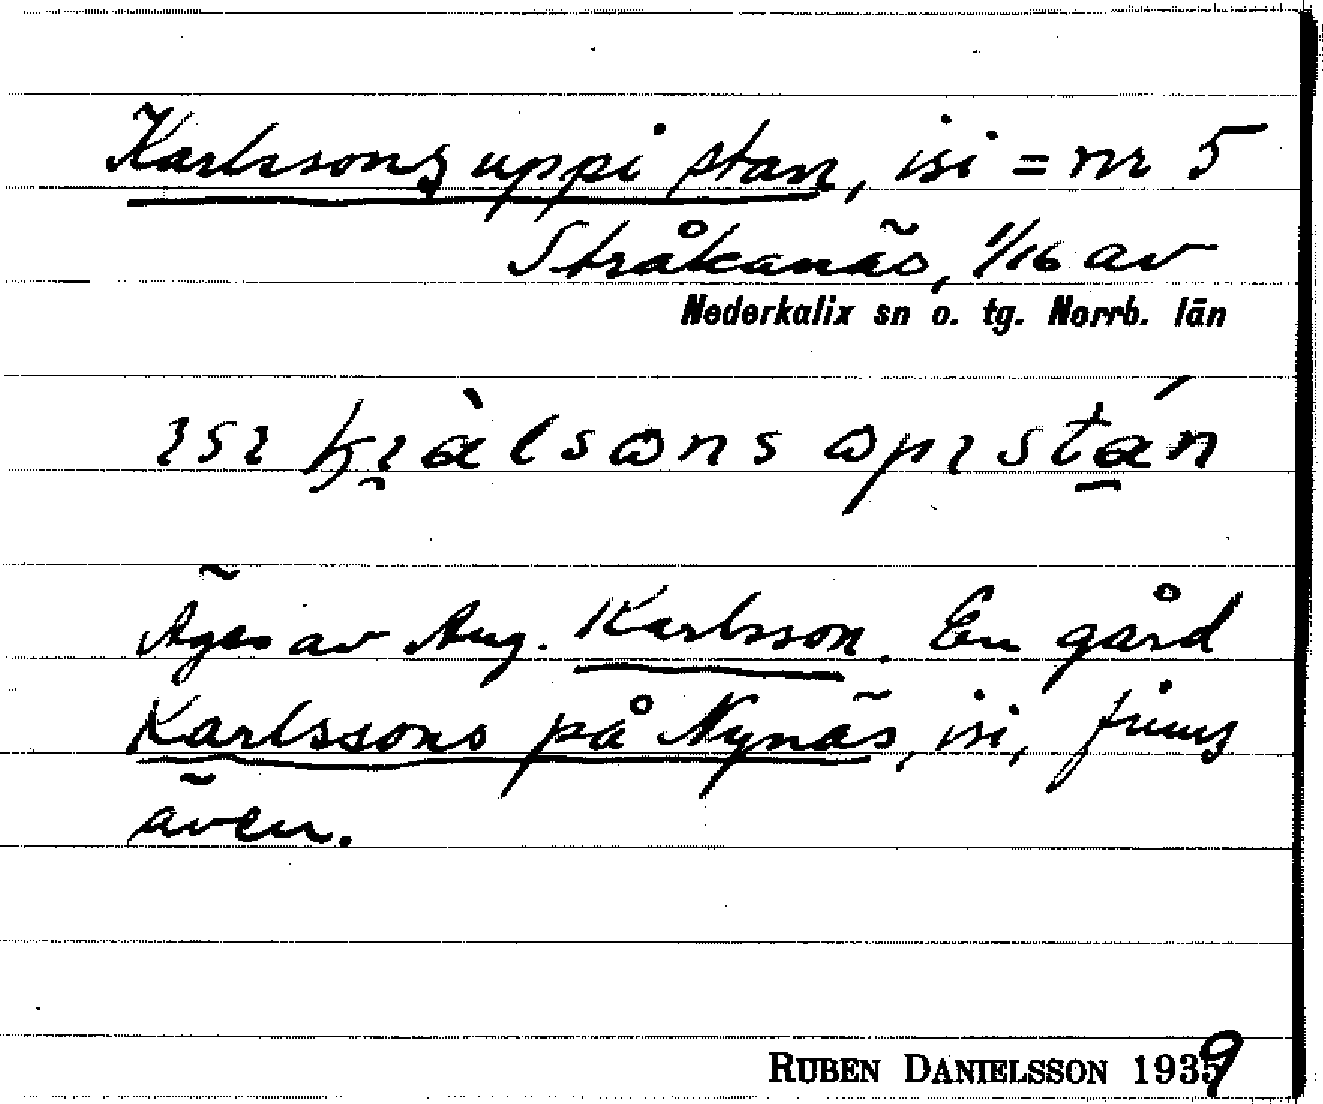 Karlssons uppi stan, isi = nr 5
Stråkanäs, 1/16 av
Nederkalix sn o. tg. Norrb. län
ısı
Äges av Aug. Karlsson. En gård
Karlssons på Nynäs, isi, finns
även.
RUBEN DANIELSSON 1939